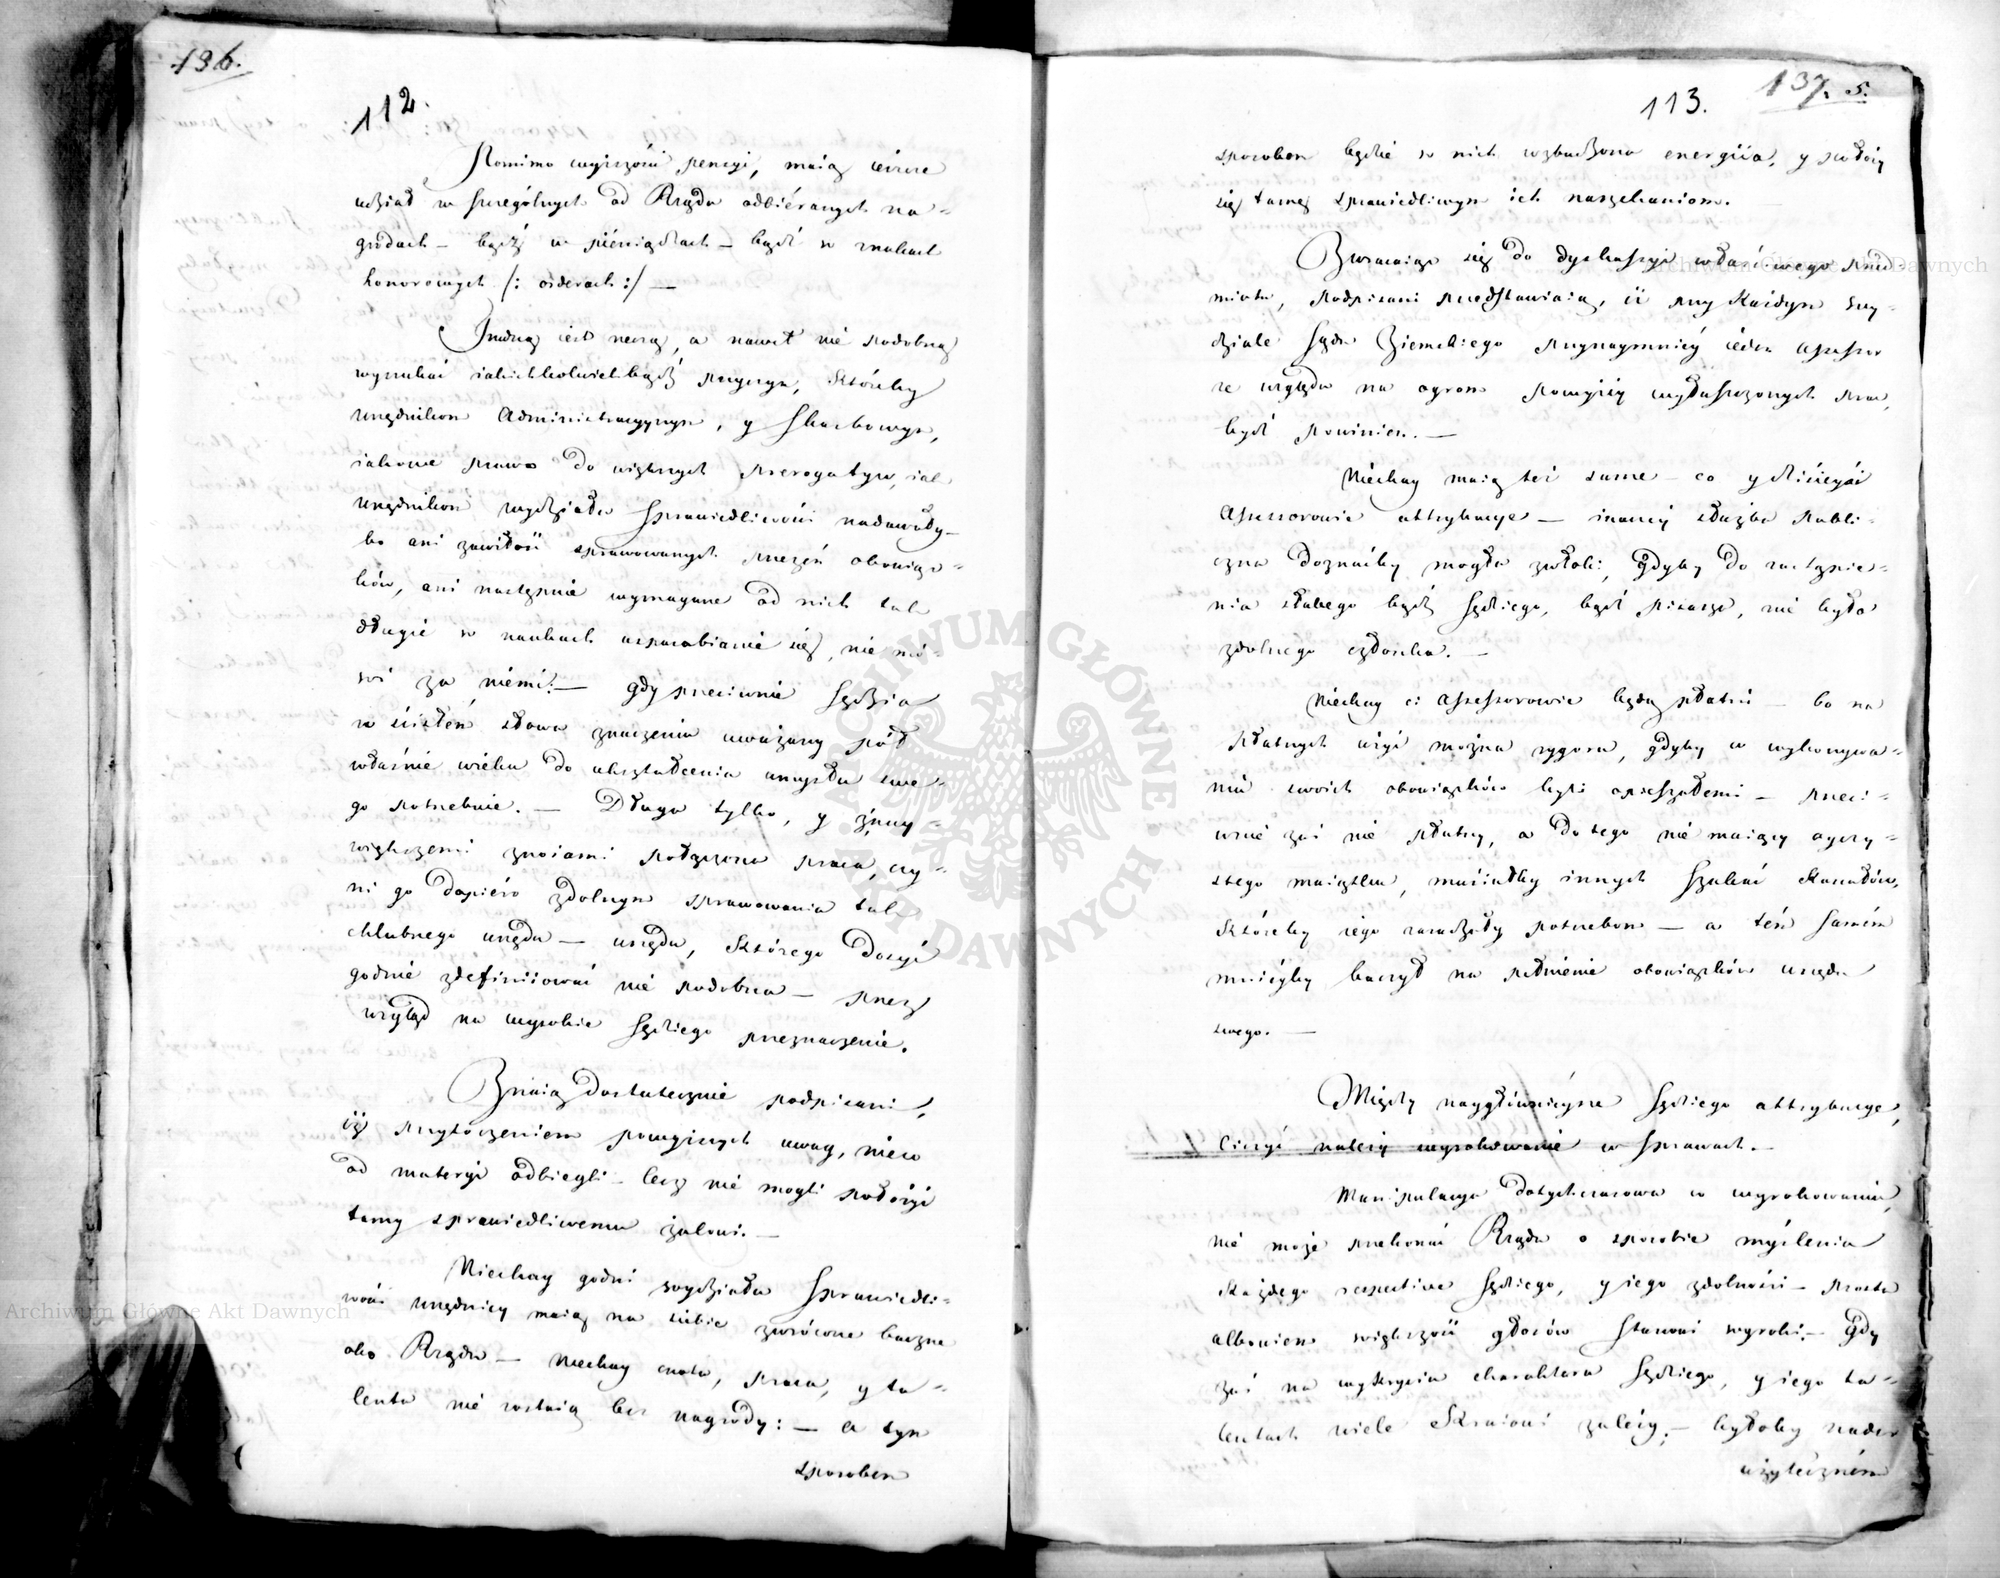 136.
112.
Pomimo wyższości pensyi, maią ieszcze
udział w szczególnych od Rządu odbiéranych na-
grodach – bądź w piéniądzach – bądź w znakach
honorowych /: orderach :/ —
Trudną iest rzeczą, a nawet nié podobną
wyszukać iakichkolwiekbądź przyczyn, któréby
urzędnikom Administracyynym, y Skarbowym,
iakowe prawo do większych prerogatyw, iak
urzędnikom wydziału Sprawiedliwości nadawały –
bo ani zawiłość sprawowanych przezeń obowiąz-
ków, ani następnié wymagane od nich tak
długié w naukach usposabianié się, nie mó-
wi za niémi. — gdy przeciwnié Sędzia
w ścisłém słowa znaczeniu uważany pół
właśnié wiéku do ukształcenia umysłu swe-
go potrzebuie. — Długa tylko, y z nay-
większemi znoiami połączona praca, czy-
ni go dopiéro zdolnym sprawowania tak
chlubnego urzędu — urzędu, którego dosyć
godnié zdefiniiować nié podobna — przez
wzgląd na wysokie Sędziego przeznaczenié.
Znaią dostatecznié podpisani,
iż przytoczeniem powyższych uwag, niéco
od materyi odbiegli – lecz nié mogli położyć
tamy sprawiedliwemu żalowi. —
Niechay godni wydziału Sprawiedli-
wości urzędnicy maią na siébie zwrócone baczne
oko Rządu — Niechay cnota, praca, y ta-
lenta nié zostaią bez nagrody: — a tym
sposobem
137. 5.
113.
sposobem będzié w nich wzbudzona energiia, y położy
się tamę sprawiedliwym ich narzekaniom. —
Zwracaiąc się do dyskussyi właściwego przed-
miotu, podpisani przedstawiaią, iż przy każdym wy-
dziale Sądu Ziemskiego przynaymniéy iéden assessor
ze względu na ogrom powyżéy wyłuszczonych prac,
bydź powinien. —
Niéchay maią też same – co y dziśieyśi
Assessorowie attrybucye — inaczéy służba Publi-
czna doznaćby mogła zwłoki, gdyby do zastąpie-
nia słabego bądź Sędziego, bądź pisarza, nié było
zdolnego członka. —
Niechay ci Assessorowie będą płatni — bo na
płatnych użyć można rygoru, gdyby w wykonywa-
niu swoich obowiązków byli opieszałemi — przeci-
wnié zaś nié płatny, a do tego nié maiący oyczy-
stego maiątku, musiałby innych szukać kanałów,
któréby iego zaradzały potrzebom — a tém samém
mniéyby baczył na pełniénié obowiązków urzędu
swego. —
Między naygłównieysze Sędziego attrybucye,
liczyć należy wyrokowanié w Sprawach. —
Manipulacya dotychczasowa w wyrokowaniu,
nié może przekonać Rządu o sposobie myślenia
każdego respective Sędziego, y iego zdolności — prosta
albowiem większość głosów stanowi wyroki. — gdy
zaś na wykryciu charakteru Sędziego, y iego ta-
lentach wiele Kraiowi zależy; — byłoby nader
użyteczném
ARCHIWUM GŁÓWNE AKT DAWNYCH
Archiwum Główne Akt Dawnych
Archiwum Główne Akt Dawnych